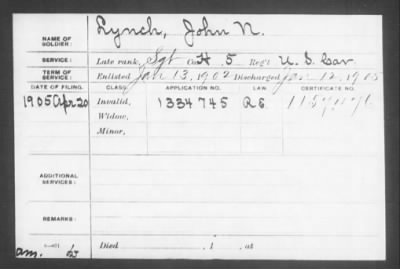 NAME OF SOLDIER: Lynch, John N.
SERVICE: Late rank, Sgt Co. H, 5 Reg't U. S. Cav
TERM OF SERVICE: Enlisted Jan 13, 1902 Discharged Jan 12, 1905
DATE OF FILING. CLASS. APPLICATION NO. LAW. CERTIFICATE NO.
1905 Apr 20 Invalid, 1334745 R.G.
Widow,
Minor,
ADDITIONAL SERVICES:
REMARKS:
Died , 1 , at
am.